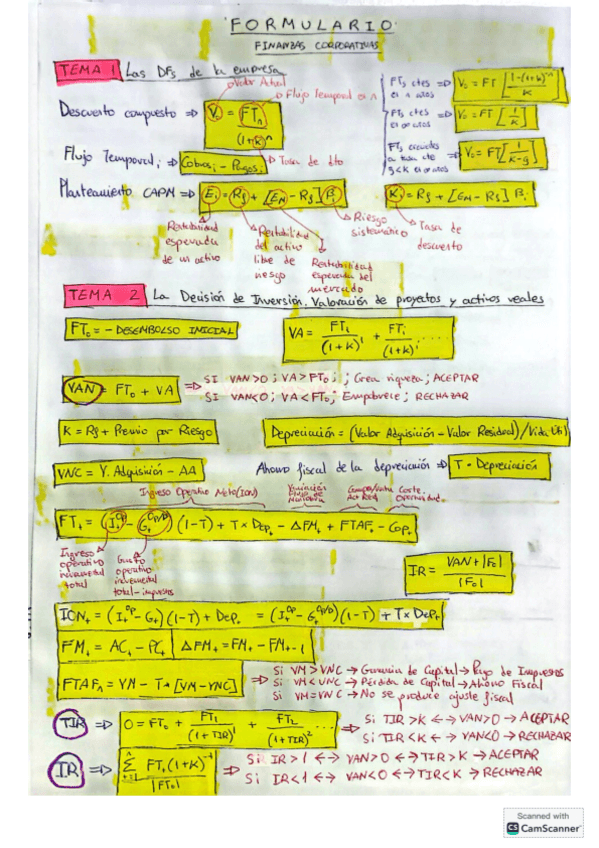 FORMULARIO
FINANZAS CORPORATIVAS
TEMA 1 Las DFs de la empresa
Valor Actual
Flujo Temporal en n
Descuento compuesto ⇒ V₀ = FTn / (1+k)ⁿ
Tasa de dto
FTs ctes en n años ⇒ V₀ = FT [ (1-(1+k)⁻ⁿ) / K ]
FTs ctes en ∞ años ⇒ V₀ = FT [ 1 / K ]
FTs crecientes a tasa cte g<K en ∞ años ⇒ V₀ = FT [ 1 / (K-g) ]
Flujo Temporal i ⇒ Cobros i - Pagos i
Planteamiento CAPM ⇒ Ei = Rf + [EM - Rf] βi
Ki = Rf + [EM - Rf] βi
Rentabilidad esperada de un activo
Rentabilidad del activo libre de riesgo
Rentabilidad esperada del mercado
Riesgo sistemático
Tasa de descuento
TEMA 2 La Decisión de Inversión. Valoración de proyectos y activos reales
FT₀ = - DESEMBOLSO INICIAL
VA = FT₁ / (1+k)¹ + FTi / (1+k)ⁱ ....
VAN = FT₀ + VA
⇒ SI VAN>0 ; VA>FT₀ ; ; Crea riqueza ; ACEPTAR
SI VAN<0 ; VA<FT₀ ; Empobrece ; RECHAZAR
K = Rf + Premio por Riesgo
Depreciación = (Valor Adquisición - Valor Residual) / Vida Útil
VNC = V. Adquisición - AA
Ahorro fiscal de la depreciación ⇒ T · Depreciación
Ingreso Operativo Neto (ION)
Coste Oportunidad
FTt = (It^Op - Gt^Op/b) (1-T) + T × Dept - ΔFMt + FTAFt - Copt
Ingreso operativo incremental total
Gasto operativo incremental total - impuestos
IR = VAN + |F₀| / |F₀|
IONt = (It^Op - Gt) (1-T) + Dept = (It^Op - Gt^Op/b) (1-T) + T × Dept
FMt = ACt - PCt
ΔFMt = FMt - FMt-1
FTAFn = VM - T · [VM - VNC]
⇒ Si VM > VNC → Ganancia de Capital → Pago de Impuestos
Si VM < VNC → Pérdida de Capital → Ahorro Fiscal
Si VM = VNC → No se produce ajuste fiscal
TIR ⇒ 0 = FT₀ + FT₁ / (1+TIR)¹ + FT₂ / (1+TIR)² ...
⇒ Si TIR > K ↔ VAN > 0 → ACEPTAR
Si TIR < K ↔ VAN < 0 → RECHAZAR
IR ⇒ Σ FTt (1+K)⁻ᵗ / |FT₀|
⇒ Si IR > 1 ↔ VAN > 0 ↔ TIR > K → ACEPTAR
Si IR < 1 ↔ VAN < 0 ↔ TIR < K → RECHAZAR
Scanned with
CS CamScanner